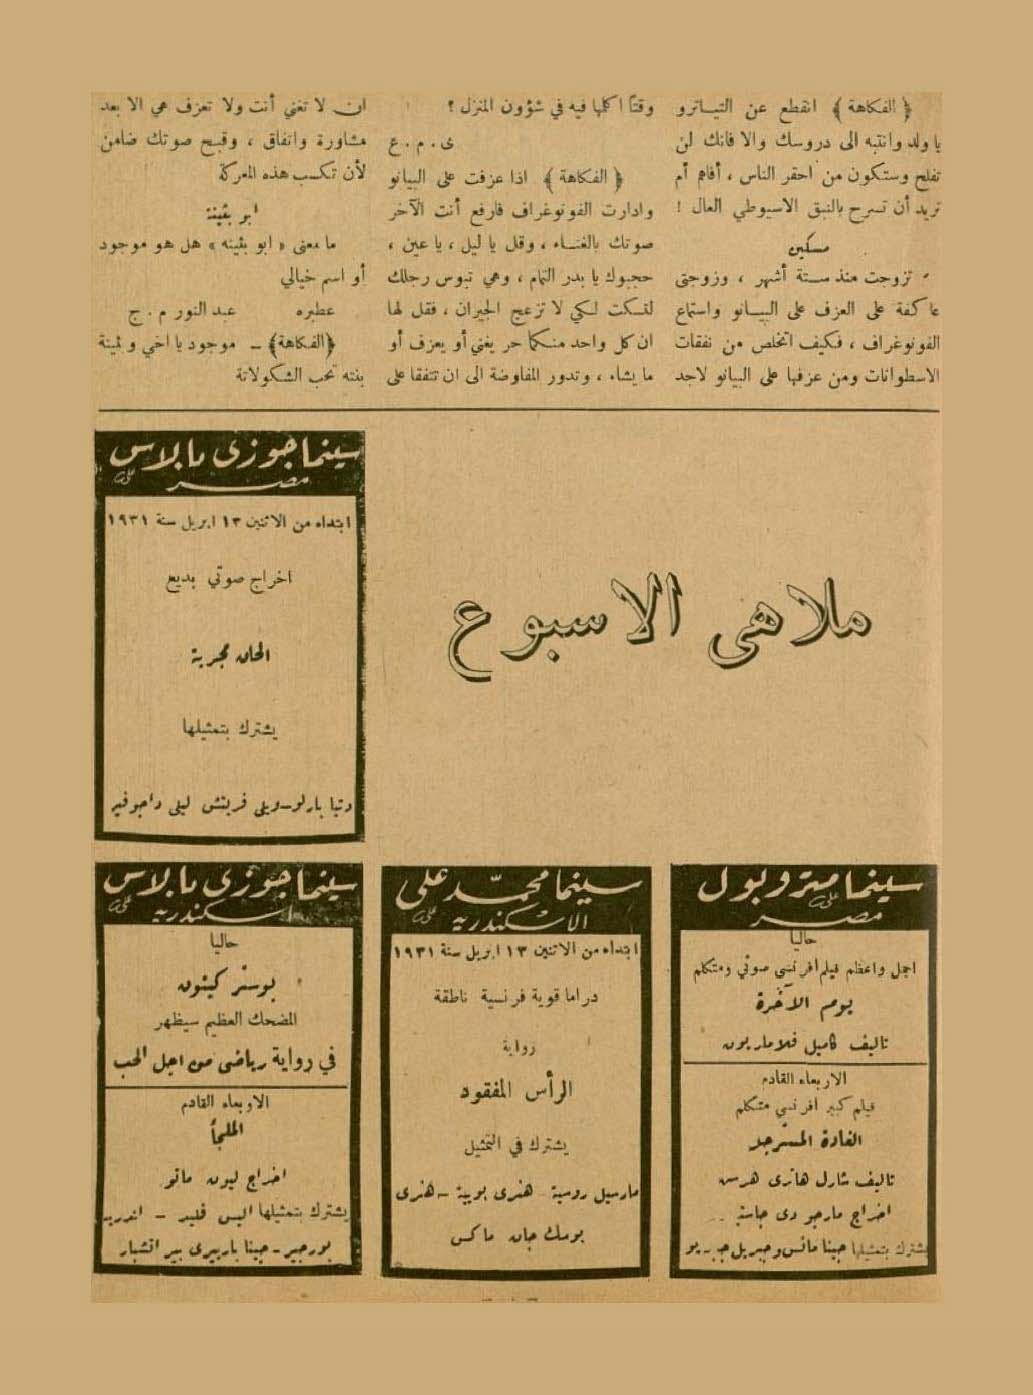 ﴿ الفكاهة ﴾ انقطع عن التيـاترو
يا ولد وانتبه الى دروسك والا فانك لن
تفلح وستكون من احقر الناس ، أفاهم أم
تريد أن تسرح بالنبق الاسيوطي العال !
مسكين
تزوجت منذ ستة أشهر ، وزوجتى
عاكفة على العزف على البيـانو واستماع
الفونوغراف ، فكيف اتخلص من نفقات
الاسطوانات ومن عزفها على البيانو لاجد
وقتاً اكلها فيه في شؤون المنزل ؟
ى . م . ع
﴿ الفكاهة ﴾ اذا عزفت على البيانو
وادارت الفونوغراف فارفع أنت الآخر
صوتك بالغنـاء ، وقل يا ليل ، يا عين ،
حجبوك يا بدر التمام ، وهي تبوس رجلك
لتسكت لكي لا تزعج الجيران ، فقل لها
ان كل واحد منكما حر يغني أو يعزف أو
ما يشاء ، وتدور المفاوضة الى ان تتفقا على
ان لا تغني أنت ولا تعزف هي الا بعد
مشاورة واتفاق ، وقبيح صوتك ضامن
لأن تكسب هذه المعركة
ابو بثينة
ما معنى « ابو بثينه » هل هو موجود
أو اسم خيالي
عطبره عبد النور م . ج
﴿الفكاهة﴾ — موجود يا اخي و بثينة
بنته تحب الشكولاتة
ملاهى الاسبوع
سينما جوزى بالاس
مصر
ابتداء من الاثنين ١٣ ابريل سنة ١٩٣١
اخراج صوتي بديع
الحان مجرية
يشترك بتمثيلها
دتيا بارلو — ويلى فريتش ليلى داجوفير
سينما متروبول
مصر
حاليا
اجمل واعظم فيلم افرنسي صوتي ومتكلم
يوم الآخرة
تاليف كاميل فلاماريون
الاربعاء القادم
فيلم كبير افرنسي متكلم
الغادة المسترجلة
تاليف شارل هانرى هرس
اخراج مارجو دى جاستـ
يشترك بتمثيلها جينا مانس وجبريل
سينما محمد على
الاسكندرية
ابتداء من الاثنين ١٣ ابريل سنة ١٩٣١
دراما قوية فرنسية ناطقة
رواية
الرأس المفقود
يشترك في التمثيل
مارسيل روميه - هنرى بوييه — هنرى
بومك جان ماكس
سينما جوزى بالاس
اسكندرية
حاليا
بوستر كيتون
المضحك العظيم سيظهر
في رواية رياضى من اجل الحب
الاربعاء القادم
الملجأ
اخراج ليون ماتو
يشترك بتمثيلها اليس فليد — اندريه
بورجير — جينا باربيرى بيير اتشبار